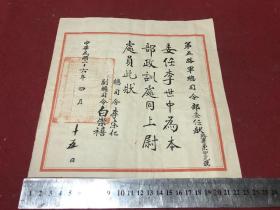 第五路軍總司令部委任狀
委任李世中為本
部政訓處同上尉
處員此狀
總司令李宗仁
副總司令白崇禧
中華民國二十六年四月十五日